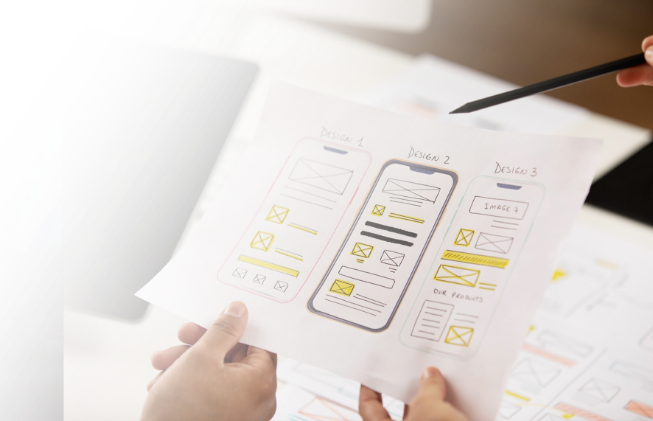 DESIGN 1
DESIGN 2
DESIGN 3
IMAGE 7
OUR PRODUCTS